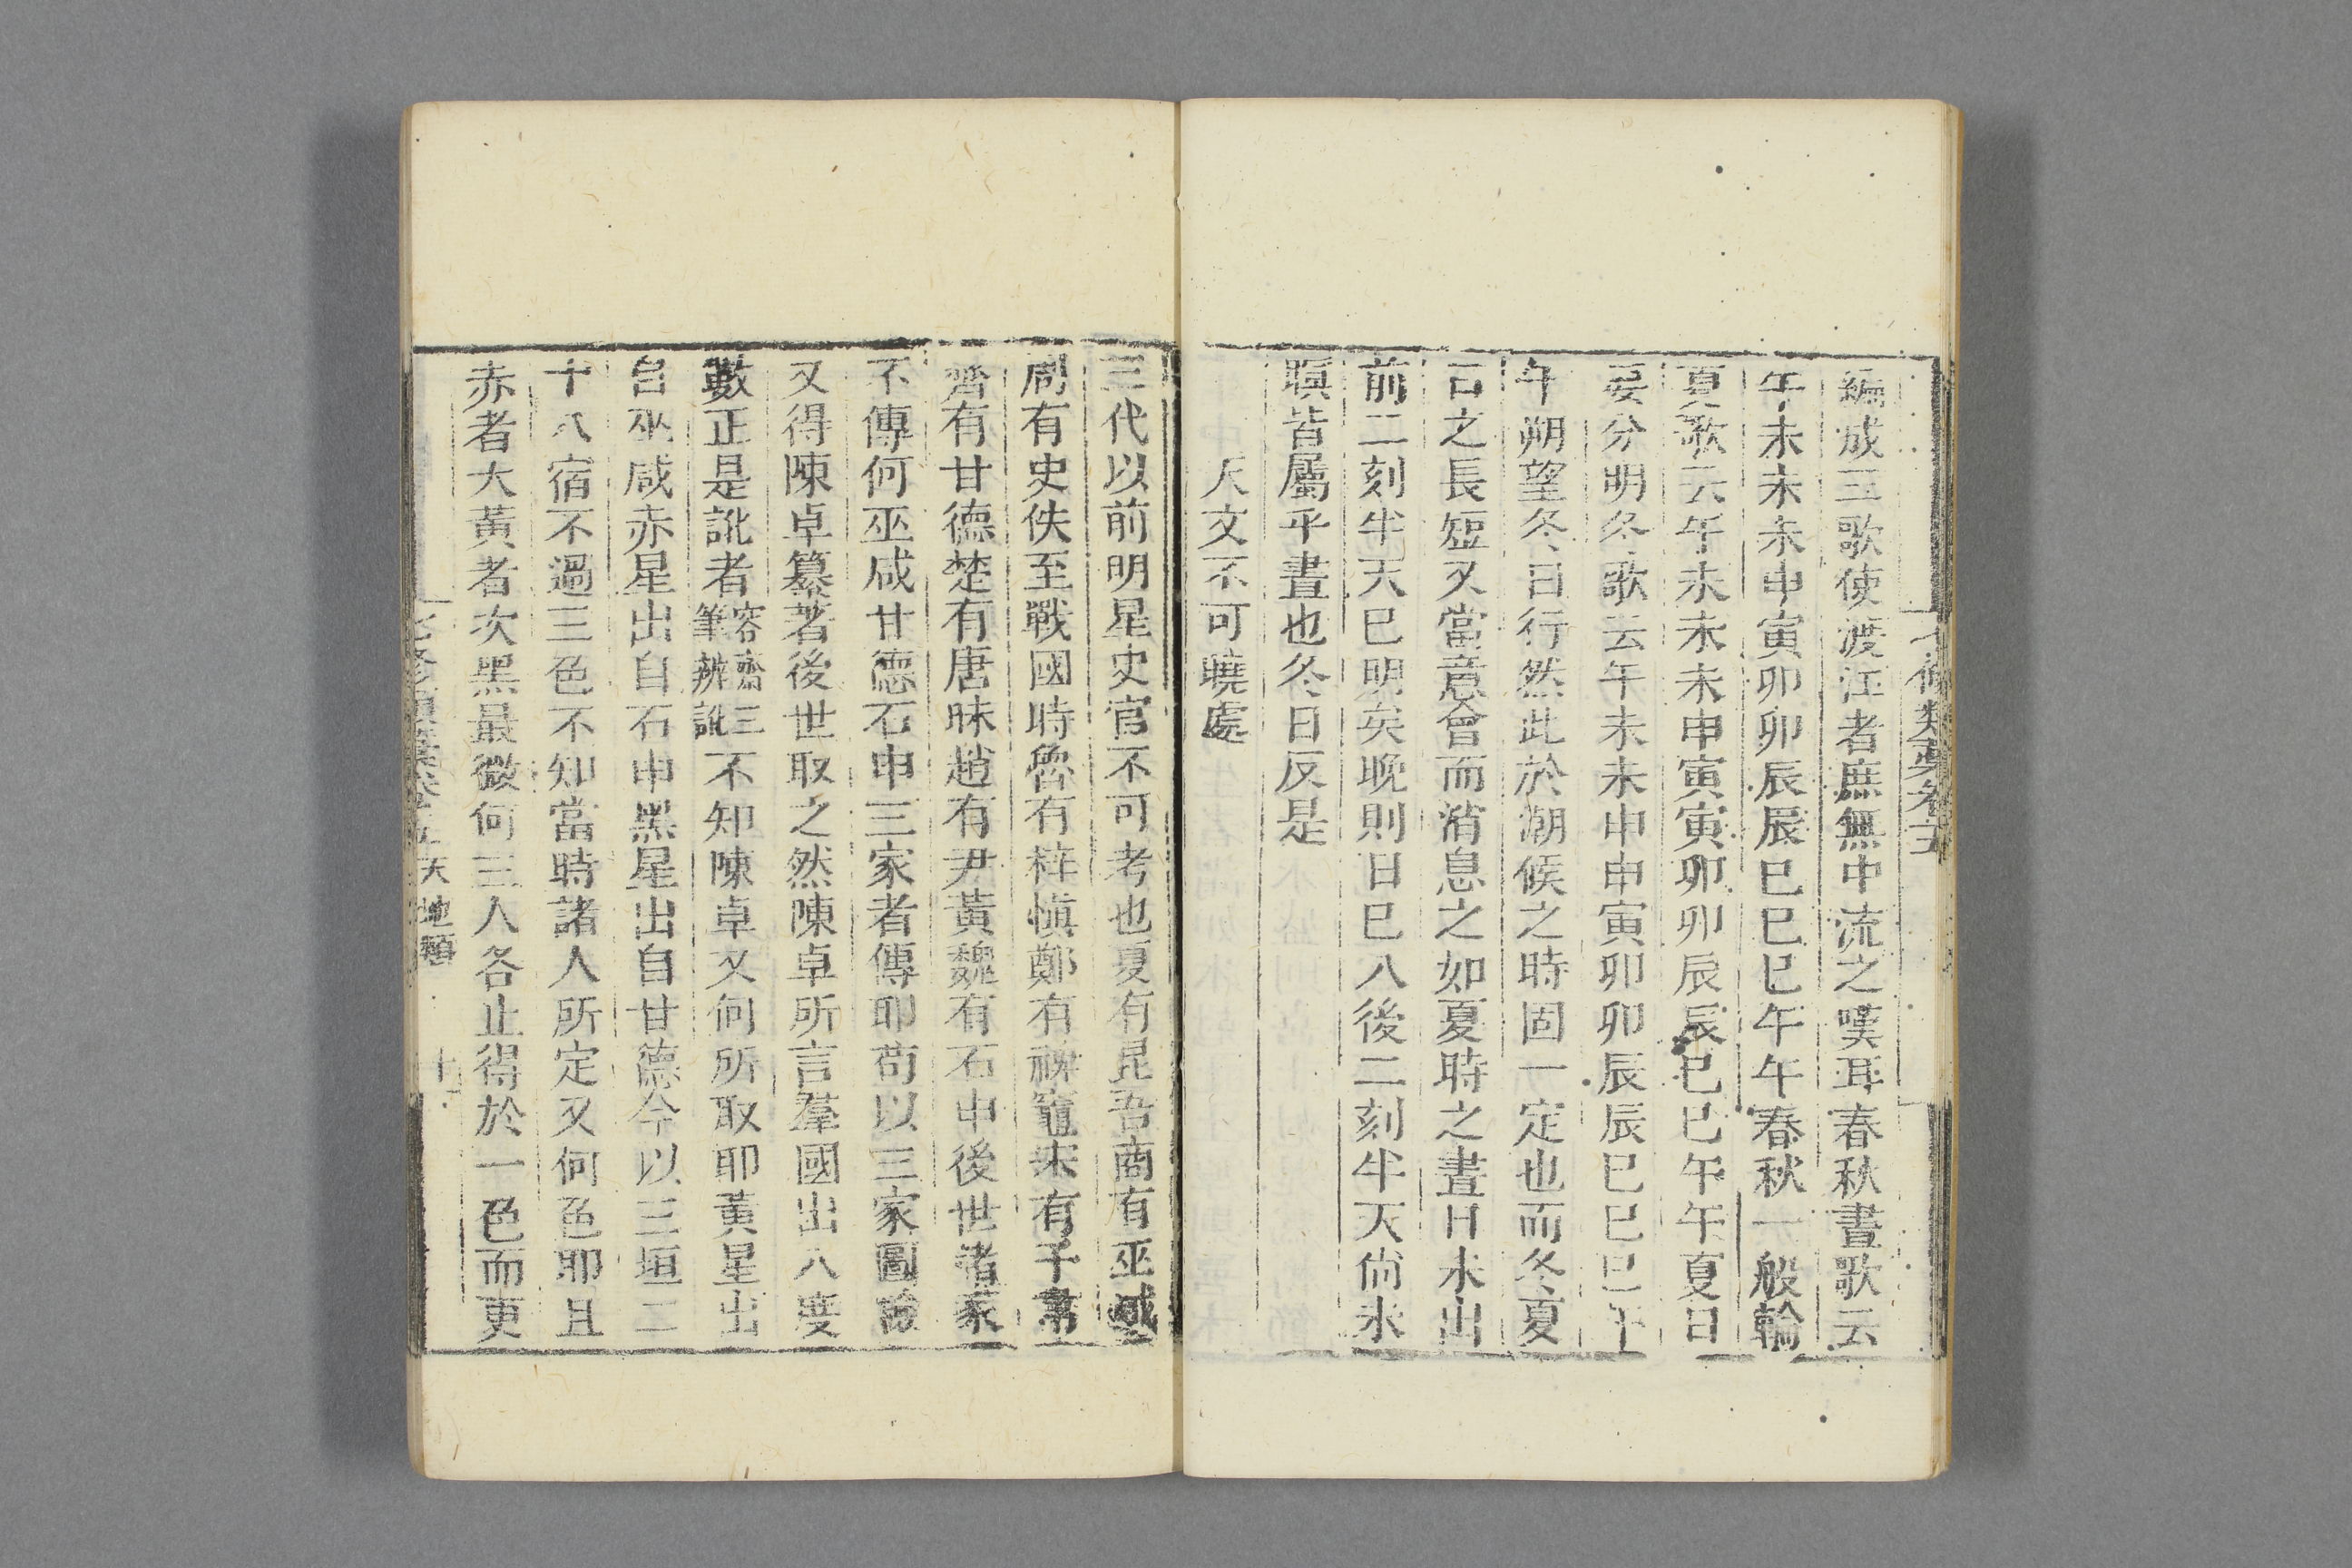 七修類藁卷五
編成三歌使渡江者庶無中流之嘆耳春秋晝歌云
午未未未申寅卯卯辰辰巳巳巳午午春秋一般輪
夏歌云午未未未申寅寅卯卯辰辰巳巳午午夏日
要分明冬歌云午未未申申寅卯卯辰辰巳巳巳午
午朔望冬日行然此於潮候之時固一定也而冬夏
日之長短又當意會而消息之如夏時之晝日未出
前二刻半天巳明矣晚則日巳入後二刻半天尚未
暝皆屬乎晝也冬日反是
天文不可曉處
三代以前明星史官不可考也夏有昆吾商有巫咸
周有史佚至戰國時魯有梓慎鄭有裨竈宋有子韋
齊有甘德楚有唐昧趙有尹黃魏有石申後世諸家
不傳何巫咸甘德石申三家者傳耶苟以三家圖論
又得陳卓纂著後世取之然陳卓所言羣國出入度
數正是訛者容齋三筆辨訛不知陳卓又何所取耶黃星出
自巫咸赤星出自石申黑星出自甘德今以三垣二
十八宿不過三色不知當時諸人所定又何色耶且
赤者大黃者次黑最微何三人各止得於一色而更
七修類藁卷五 天地類 十一